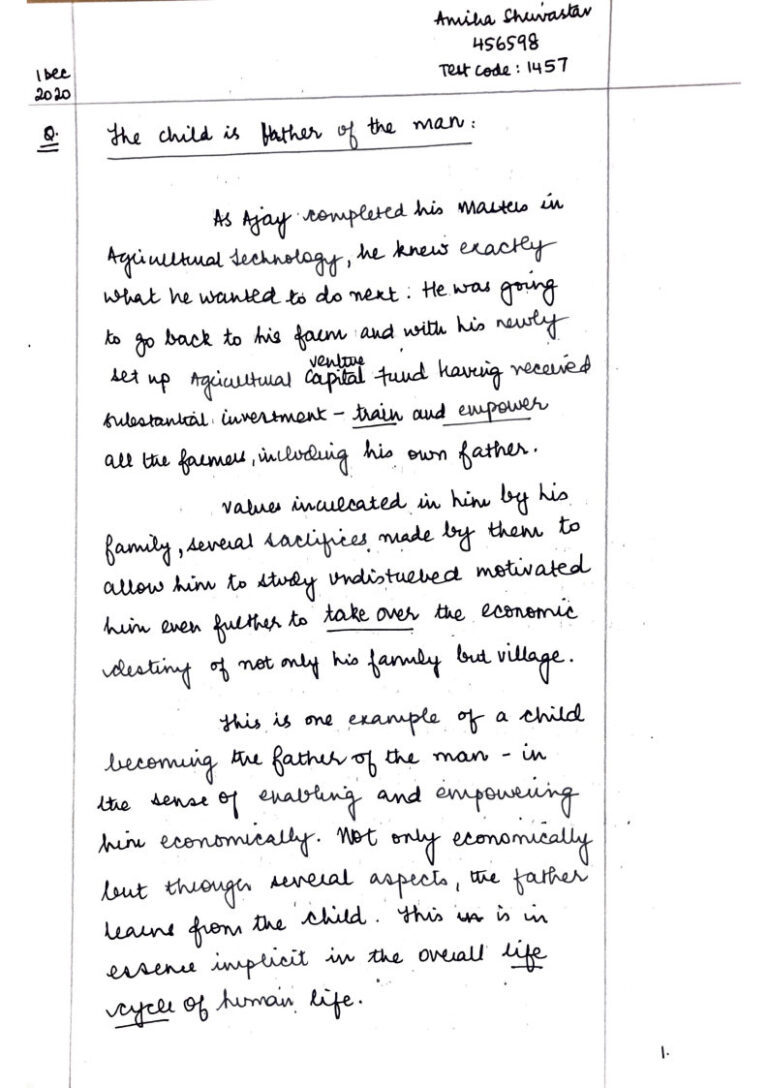 Amiha Shrivastav
456598
Test Code : 1457
1 Dec
2020
Q. The child is father of the man :
As Ajay completed his Masters in
Agricultural Technology, he knew exactly
what he wanted to do next : He was going
to go back to his farm and with his newly
set up Agricultural venture Capital Fund having received
substantial investment – train and empower
all the farmers, including his own father.
Values inculcated in him by his
family, several sacrifices made by them to
allow him to study undisturbed motivated
him even further to take over the economic
destiny of not only his family but village.
This is one example of a child
becoming the father of the man – in
the sense of enabling and empowering
him economically. Not only economically
but through several aspects, the father
learns from the child. This is in
essence implicit in the overall life
cycle of human life.
1.